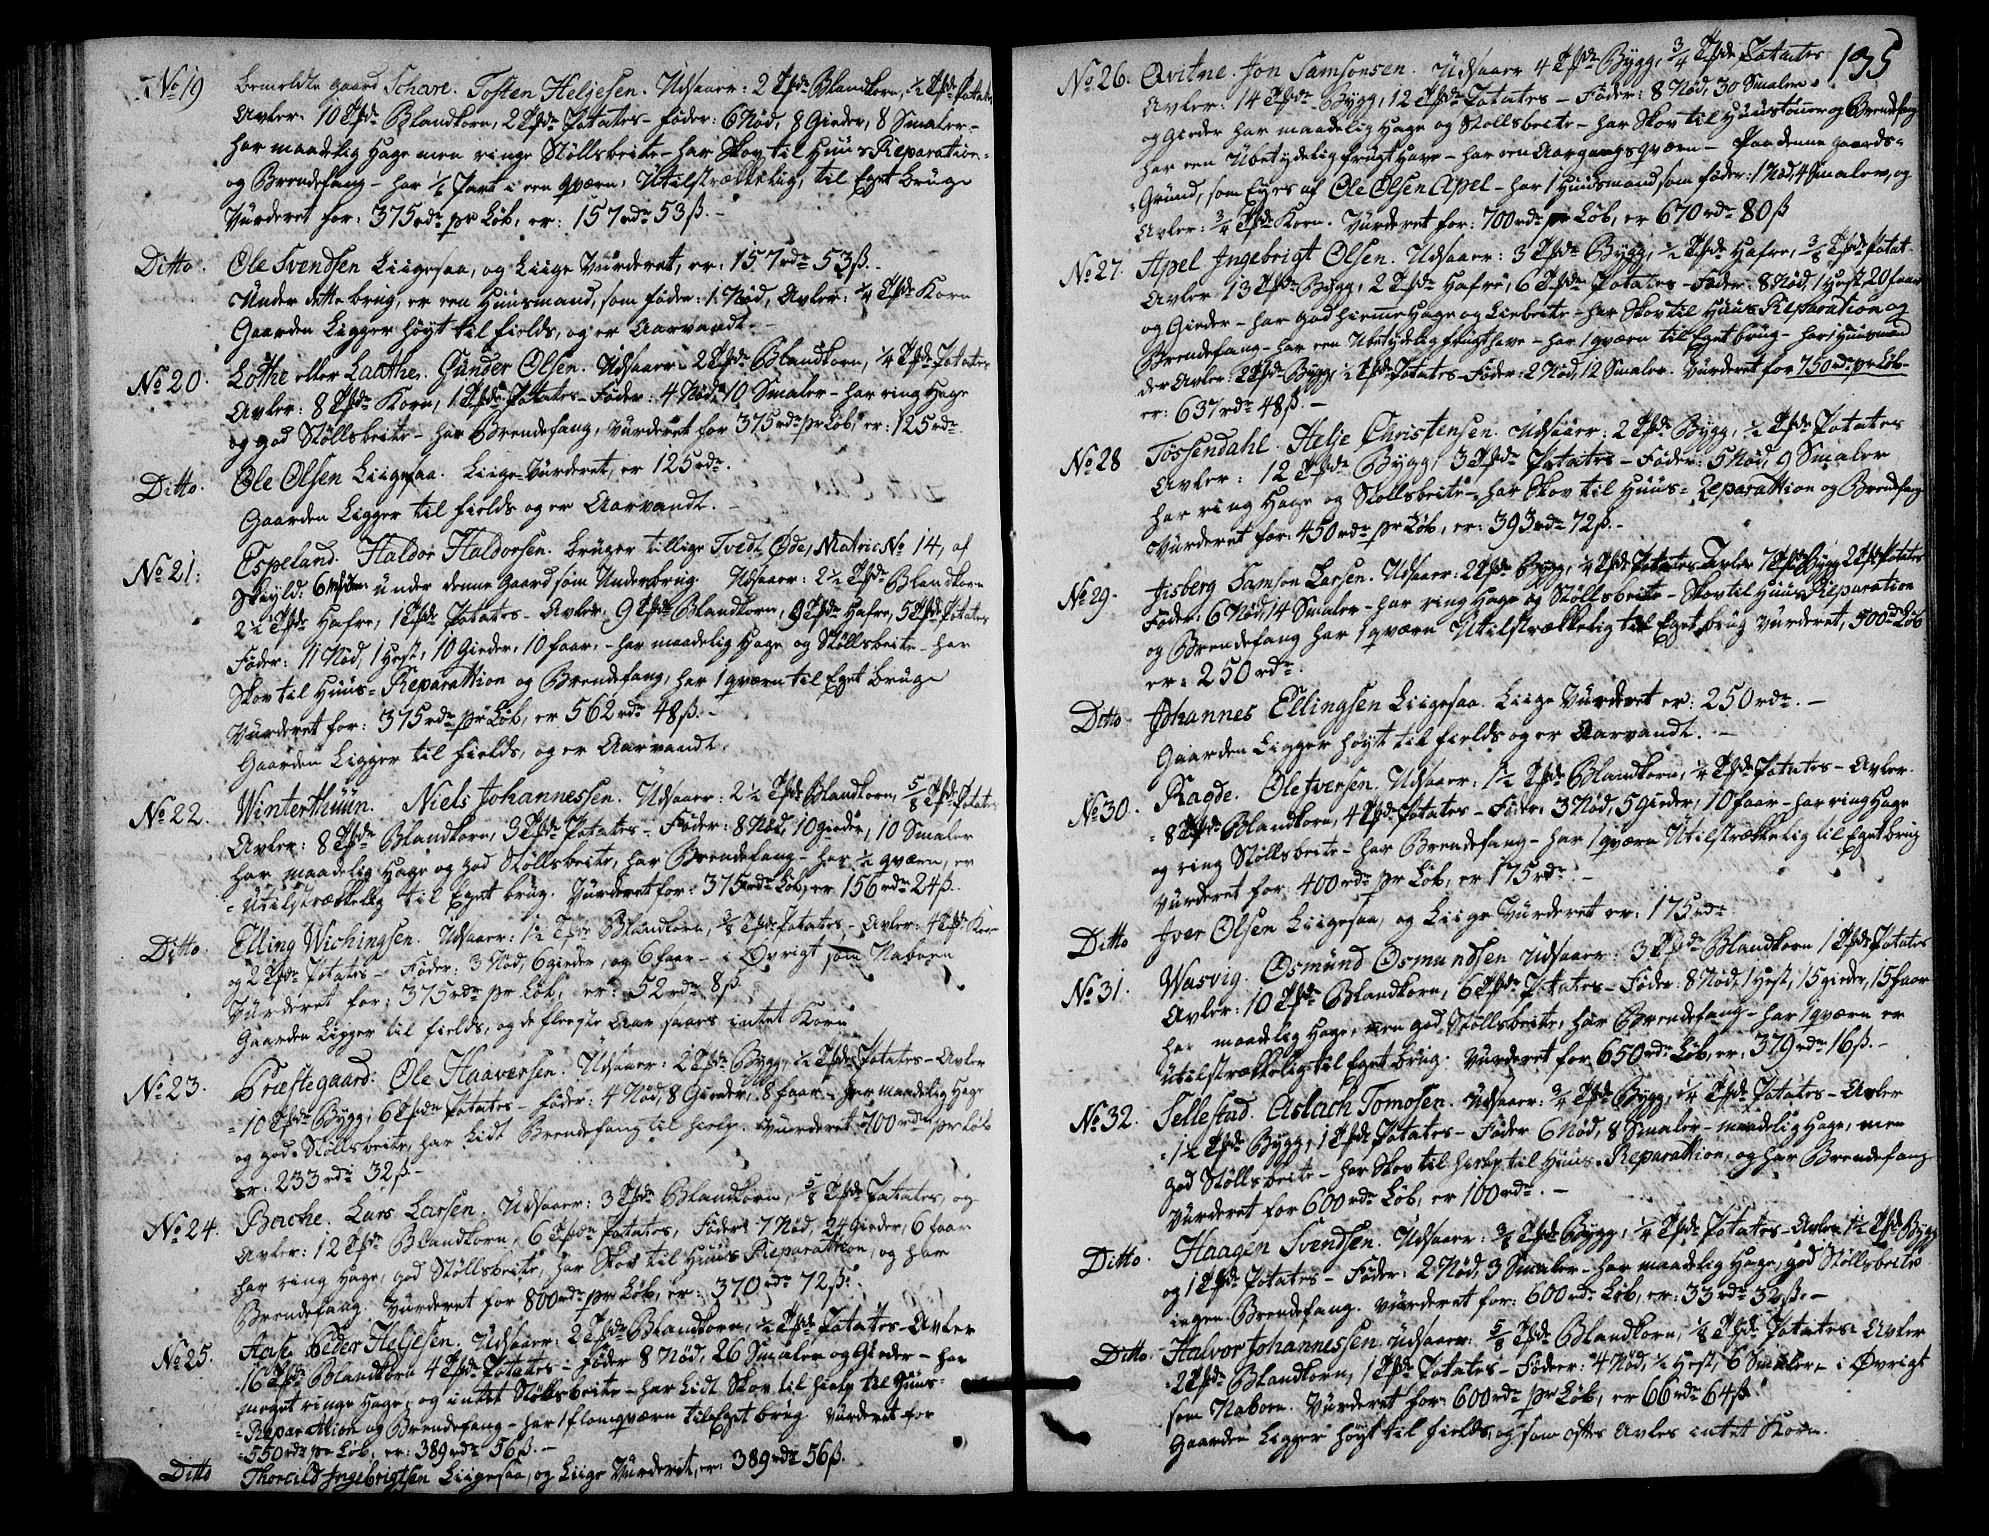 No 19 bemeldte gaard Schare. Tosten Heljesen. Udsaaer: 2 Tde Blandkorn, ½ Tde Potates
Avler: 10 Tdr Blandkorn, 2 Tde Potates – føder: 6 Nød, 8 Gieder, 8 Smaler –
har maadelig Hage men ringe Støllsbeite – har Skov til Huus Reparation
og Brendefang – har 1/6 Part i een qværn, Utilstrækkelig, til Eget bruge
Vurderet for: 375 rdr pr Løb, er: 157 rdr 53 ß. –
Ditto. Ole Svendsen Liigesaa, og Liige Vurderet, er: 157 rdr 53 ß. –
Under dette brug, er een Huusmand, som føder: 1 Nød, Avler: ¼ Tde Korn
Gaarden Ligger høyt til fields, og er Aarvandt. –
No 20. Lothe eller Laathe. Gunder Olsen. Udsaaer: 2 Tde Blandkorn, ¼ Tde Potates
Avler: 8 Tdr Korn, 1 Tde Potates – Føder: 4 Nød, 10 Smaler – har ring Hage
og god Støllsbeite – har Brendefang, Vurderet for 375 rdr pr Løb, er: 125 rdr.
Ditto. Ole Olsen Liigesaa. Liige Vurderet, er 125 rdr.
Gaarden Ligger til fields og er Aarvandt. –
No 21: Espeland. Haldor Haldorsen. bruger tillige Tvedt, Øde, Matric No 14, af
Skyld: 6 under denne Gaard som Underbrug. Udsaaer: 2½ Tde Blandkorn
2½ Tde Hafre, 1 Tde Potates – Avler: 9 Tde Blandkorn, 9 Tde Hafre, 5 Tde Potates
Føder: 11 Nød, 1 Hest, 10 Gieder, 10 faar, – har maadelig Hage og Støllsbeite – har
Skov til Huus-Reparattion og Brendefang, har 1 qværn til Eget bruge
Vurderet for: 375 rdr pr Løb, er 562 rdr 48 ß. –
Gaarden Ligger til fields, og er Aarvandt.
No 22. Winterthuun. Niels Johannessen. Udsaaer: 2½ Tde Blandkorn, 5/8 Tde Potates
Avler: 8 Tde Blandkorn, 3 Tde Potates – Føder: 8 Nød, 10 gieder, 10 Smaler
har maadelig Hage og god Støllsbeite, har Brendefang – har ½ qværn, er
utilstrækkelig til Eget brug. Vurderet for: 375 rdr Løb, er 156 rdr 24 ß. –
Ditto. Elling Wichingsen. Udsaaer: 1½ Tde Blandkorn, 3/8 Tde Potates – Avler: 4 Tde Korn
og 2 Tde Potates – Føder: 3 Nød, 6 gieder, og 6 faar – i Øvrigt som Naboen
Vurderet for: 375 rdr pr Løb, er: 52 rdr 8 ß.
Gaarden Ligger til fields, og de fleeste Aar faaes intet Korn
No 23. Præstegaard: Ole Haaversen. Udsaaer: 2 Tde Bygg, ½ Tde Potates – Avler
10 Tde Bygg, 6 Tde Potates – føder: 4 Nød, 8 Gieder, 8 faar – har maadelig Hage
og god Støllsbeite, har Lidt Brendefang til hielp. Vurderet 700 rdr pr Løb
er: 233 rdr 32 ß –
No 24. Bache. Lars Larsen. Udsaaer: 3 Tde Blandkorn, 5/8 Tde Potates, og
Avler: 12 Tde Blandkorn, 6 Tde Potates, Føder: 7 Nød, 24 Gieder, 6 faar
har ring Hage, god Støllsbeite, har Skov til Huus Reparattion, og har
Brendefang. Vurderet for 800 rdr pr Løb, er: 370 rdr 72 ß.
No 25. Aase. Peder Heljesen. Udsaaer: 2 Tde Blandkorn, ½ Tde Potates – Avler
16 Tde Blandkorn 4 Tde Potates – Føder 8 Nød, 26 Smaler og Gieder – har
meget ringe Hage, og intet Støllsbeite – har Lidt Skov til hielp til Huus-
Reparattion og Brendefang – har 1 flomqværn til Eget brug Vurderet for
550 rdr pr Løb, er: 389 rdr 56 ß. –
Ditto Thorcild Ingebrigtsen Liigesaa, og Liige Vurderet, er: 389 rdr 56 ß.
135
No 26. Qvitne. Jon Samsonsen. Udsaaer 4 Tde Bygg, ¾ Tde Potates
Avler: 14 Tde Bygg, 12 Tde Potates – Føder: 8 Nød, 30 Smaler
og Gieder har maadelig Hage og Støllsbeite – har Skov til Huustømer og Brendefang
har een Ubetydelig frugthave – har een Aargangsqværn – Paa denne gaards-
Grund, som Eyes af Ole Olsen Apel – har 1 Huusmand som føder: 1 Nød, 4 Smaler, og
Avler: ¾ Tde Korn. Vurderet for: 700 rdr pr Løb, er 670 rdr 80 ß
No 27. Apel Ingebrigt Olsen. Udsaaer: 3 Tde Bygg, ½ Tde Hafre, 3/8 Tde Potat.
Avler 13 Tde Bygg, 2 Tde Hafre, 6 Tde Potates – Føder: 8 Nød, 1 Hest, 20 faar
og Gieder – har god hiemme Hage og Liebeite – har Skov til Huus Reparattion og
Brendefang – har een Ubetydelig frugthave – har 1 qværn til Eget brug – har 1 Huusmand
der Avler: 2 Tde Bygg, ½ Tde Potates – Føder: 2 Nød, 12 Smaler. Vurderet for 750 rdr pr Løb
er: 637 rdr 48 ß. –
No 28 Tossendahl. Helje Christensen. Udsaaer: 2 Tde Bygg, ½ Tde Potates
Avler: 12 Tde Bygg, 3 Tde Potates – Føder: 5 Nød, 9 Smaler
har ring Hage og Støllsbeite – har Skov til Huus-Reparattion og Brendefang
Vurderet for: 450 rdr pr Løb, er: 393 rdr 72 ß. –
No 29. Jisberg Samson Larsen. Udsaaer: 2 Tde Bygg, ¼ Tde Potates Avler 7 Tde Bygg 2 Tde Potates
Føder: 6 Nød, 14 Smaler – har ring Hage og Støllsbeite – Skov til Huus Reparattion
og Brendefang har 1 qværn Utilstrækkelig til Eget brug Vurderet, 500 rdr Løb
er: 250 rdr.
Ditto. Johannes Ellingsen Liigesaa. Liige Vurderet er: 250 rdr. –
Gaarden Ligger høyt til fields og er Aarvandt. –
No 30. Ragde. Ole Iversen. Udsaaer: 1½ Tde Blandkorn, ¼ Tde Potates – Avler.
8 Tde Blandkorn, 4 Tde Potates – Føder: 3 Nød, 5 Gieder, 10 faar – har ring Hage
og ring Støllsbeite – har Brendefang – har 1 qværn Utilstrækkelig til Eget brug
Vurderet for: 400 rdr pr Løb, er 175 rdr. –
Ditto Iver Olsen Liigesaa, og Liige Vurderet er: 175 rdr
No 31. Wasvig. Osmund Osmundsen Udsaaer: 3 Tde Blandkorn 1 Tde Potates
Avler: 10 Tde Blandkorn, 6 Tde Potates – Føder: 8 Nød, 1 Hest, 15 gieder, 15 faar
har maadelig Hage, men god Støllsbeite, har Brendefang – har 1 qværn er
utilstrækkelig til Eget brug. Vurderet for 650 rdr Løb, er: 379 rdr 16 ß. –
No 32. Sellestad. Aslach Tomosen. Udsaaer: ¾ Tde Bygg, ¼ Tde Potates – Avler
1½ Tde Bygg, 1 Tde Potates – Føder 6 Nød, 8 Smaler – maadelig Hage, men
god Støllsbeite – har Skov til hielp til Huus-Reparattion, og har Brendefang
Vurderet for 600 rdr Løb, er 100 rdr. –
Ditto. Haagen Svendsen. Udsaaer: 3/8 Tde Bygg, ¼ Tde Potates – Avler 1½ Tde Bygg
og 1 Tde Potates – Føder: 2 Nød, 3 Smaler – har maadelig Hage, god Støllsbeite
ingen Brendefang. Vurderet for: 600 rdr Løb, er: 33 rdr 32 ß. –
Ditto Halvor Johannessen. Udsaaer: 5/8 Tde Blandkorn, 1/8 Tde Potates – Avler
2 Tde Blandkorn, 1 Tde Potates – Føder: 4 Nød, ½ Hest, 6 Smaler, – i Øvrigt
som Naboen. Vurderet for: 600 rdr pr Løb, er 66 rdr 64 ß
Gaarden Ligger høyt til fields, og som oftes Avles intet Korn.